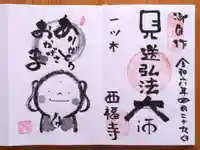 御自作
見送弘法大師
一ツ木
西福寺
令和六年四月二十九日
ありがとう
おかげさま